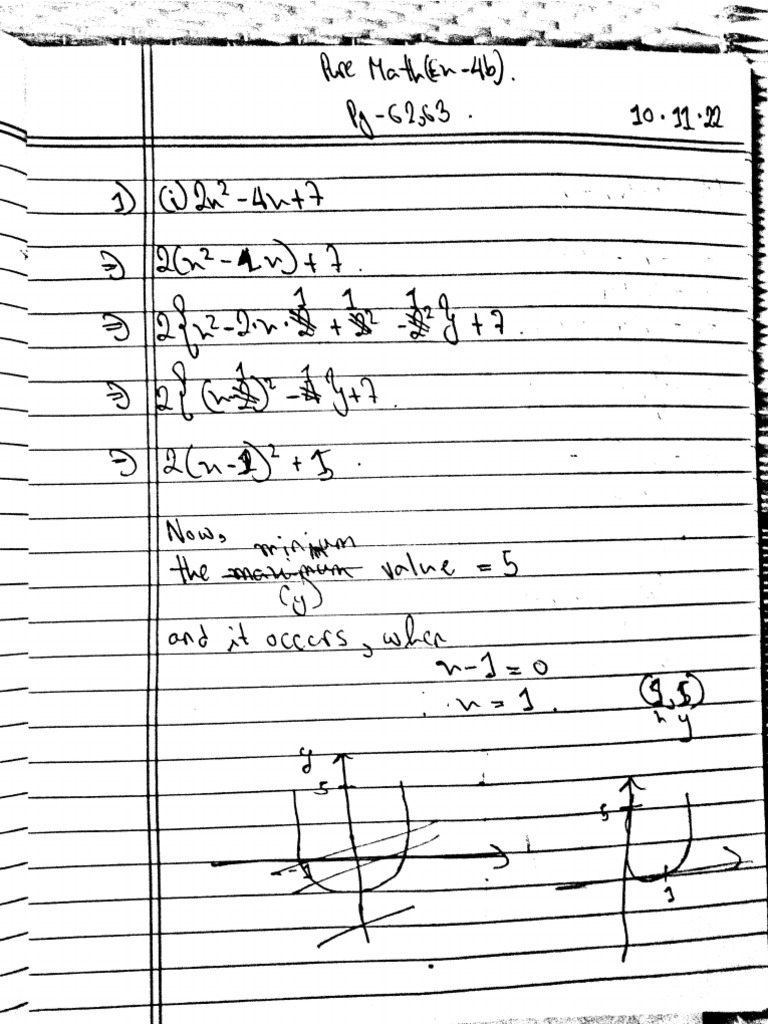 Pure Math(Ex-4b).
Pg-62,63.
10.11.22
1) (i) 2x² - 4x + 7
⇒ 2(x² - 2x) + 7.
⇒ 2{x² - 2·x·1 + 1² - 1²} + 7.
⇒ 2{(x-1)² - 1} + 7.
⇒ 2(x-1)² + 5.
Now,
minimum
the maximum value = 5
(y)
and it occurs, when
x-1 = 0
x = 1.
(1,5)
x y
y
5
5
-1
1